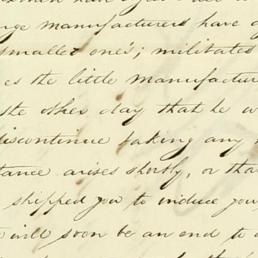 manufacturers have
smaller one's; militates
es the little manufacture
the other day that he w
discontinue taking any
tance arises shortly, or tha
shipped you to induce you
will soon be an end to